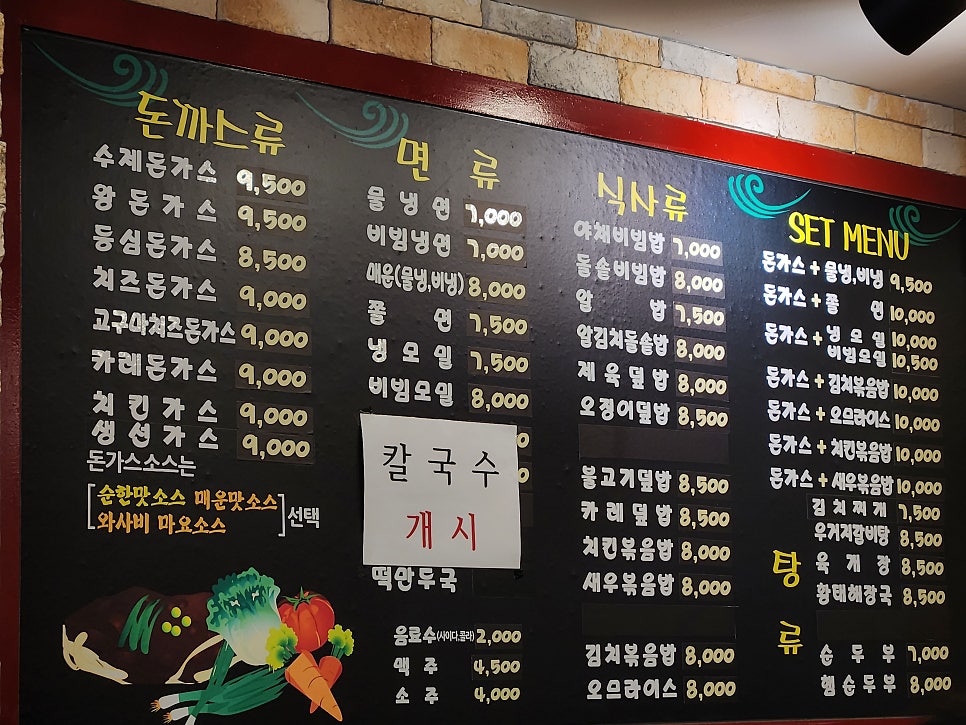 돈까스류
수제돈가스 9,500
왕돈가스 9,500
등심돈가스 8,500
치즈돈가스 9,000
고구마치즈돈가스 9,000
카레돈가스 9,000
치킨가스 9,000
생선가스 9,000
돈가스소스는
[순한맛소스 매운맛소스
와사비 마요소스] 선택
면류
물냉면 7,000
비빔냉면 7,000
매운(물냉,비냉) 8,000
쫄면 7,500
냉모밀 7,500
비빔모밀 8,000
칼국수
개시
떡만두국
음료수(사이다,콜라) 2,000
맥주 4,500
소주 4,000
식사류
야채비빔밥 7,000
돌솥비빔밥 8,000
알밥 7,500
알김치돌솥밥 8,000
제육덮밥 8,000
오징어덮밥 8,500
불고기덮밥 8,500
카레덮밥 8,500
치킨볶음밥 8,000
새우볶음밥 8,000
김치볶음밥 8,000
오므라이스 8,000
SET MENU
돈가스+물냉,비냉 9,500
돈가스+쫄면 10,000
돈가스+냉모밀 10,000
비빔모밀 10,500
돈가스+김치볶음밥 10,000
돈가스+오므라이스 10,000
돈가스+치킨볶음밥 10,000
돈가스+새우볶음밥 10,000
탕류
김치찌개 7,500
우거지갈비탕 8,500
육개장 8,500
황태해장국 8,500
순두부 7,000
햄순두부 8,000